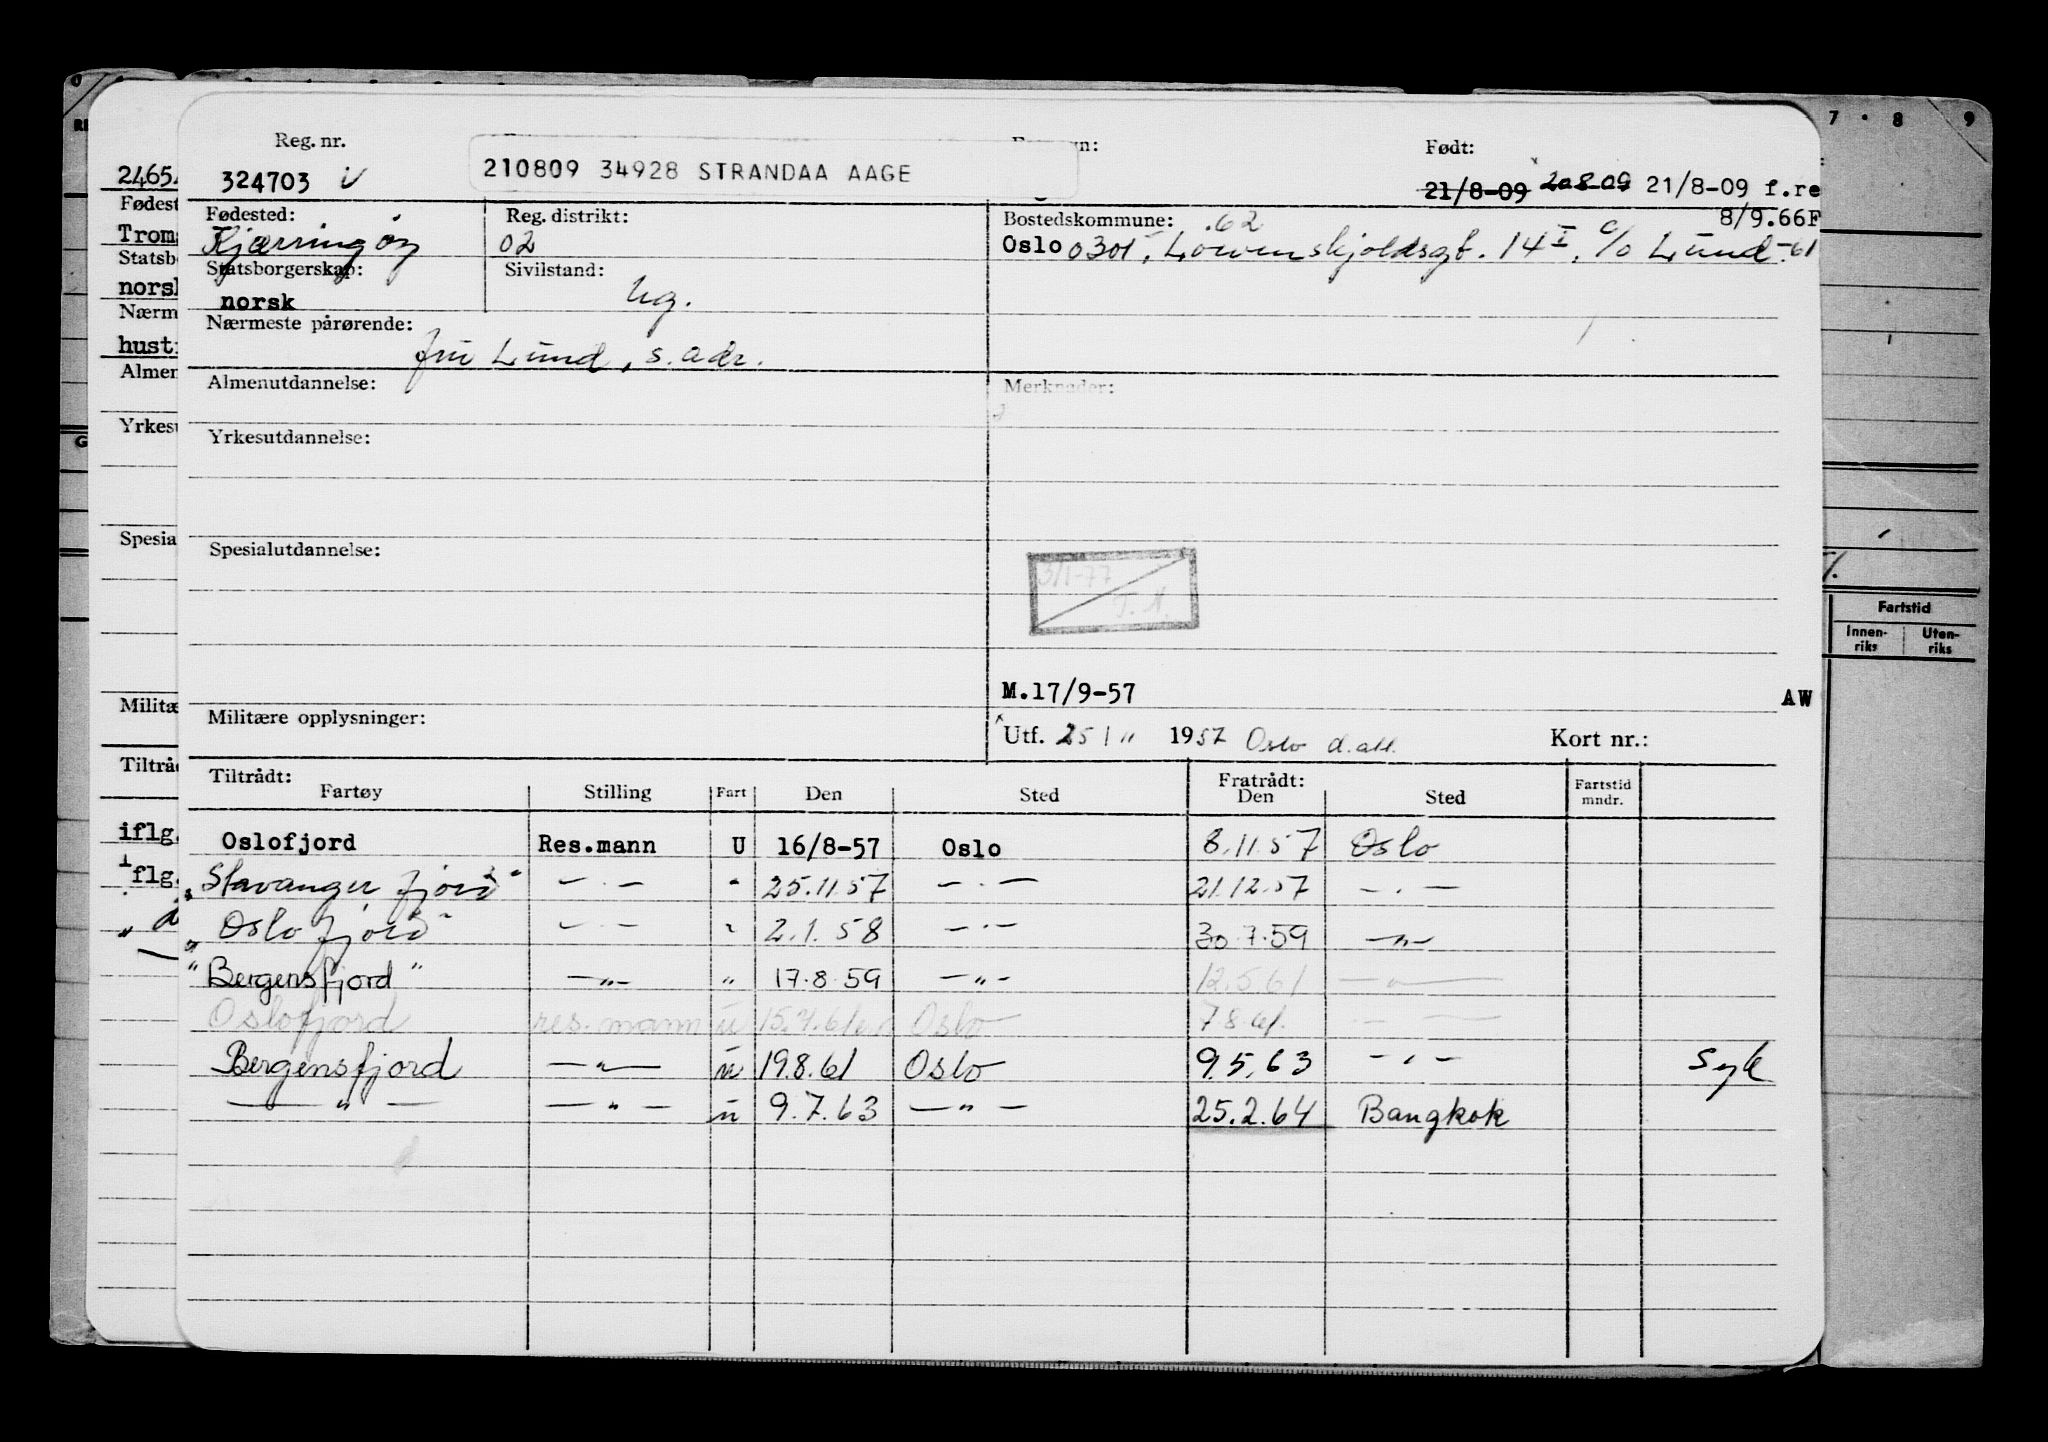 Reg. nr.
Født:
210809 34928 STRANDAA AAGE
324703
21/8-09 20 8-09 21/8-09 f.re
8/9.66F
Fødested:
Reg. distrikt:
Bostedskommune: .62
Kjærringøy
02
Oslo 0301, Løvenskjoldsgt. 14 I, c/o Lund -61
Statsborgerskap:
Sivilstand:
norsk
ug.
Nærmeste pårørende:
fru Lund, s. adr.
Almenutdannelse:
Merknader:
Yrkesutdannelse:
Spesialutdannelse:
3/1-77
T. N.
M.17/9-57
AW
Militære opplysninger:
Utf. 25 / 11 1957 Oslo d. att.
Kort nr.:
Tiltrådt:
Fratrådt:
Fartøy Stilling Fart Den Sted Den Sted Fartstid mndr.
Oslofjord Res.mann U 16/8-57 Oslo 8.11.57 Oslo
"Stavangerfjord" — " — " 25.11.57 — " — 21.12.57 — " —
"Oslofjord" — " — " 2.1.58 — " — 30.7.59 — " —
"Bergensfjord" — " — " 17.8.59 — " — 12.5.61 — " —
Oslofjord res.mann u Oslo 7.8.61 — " —
Bergensfjord — " — u 19.8.61 Oslo 9.5.63 — " — Syk
— " — — " — u 9.7.63 — " — 25.2.64 Bangkok
2465
Fødest
Trom
Statsb
norsk
Nærm
hust
Almen
Yrkesu
Spesia
Militæ
Tiltråd
iflg.
iflg.
7 8 9
Fartstid
Innen-
riks
Uten-
riks